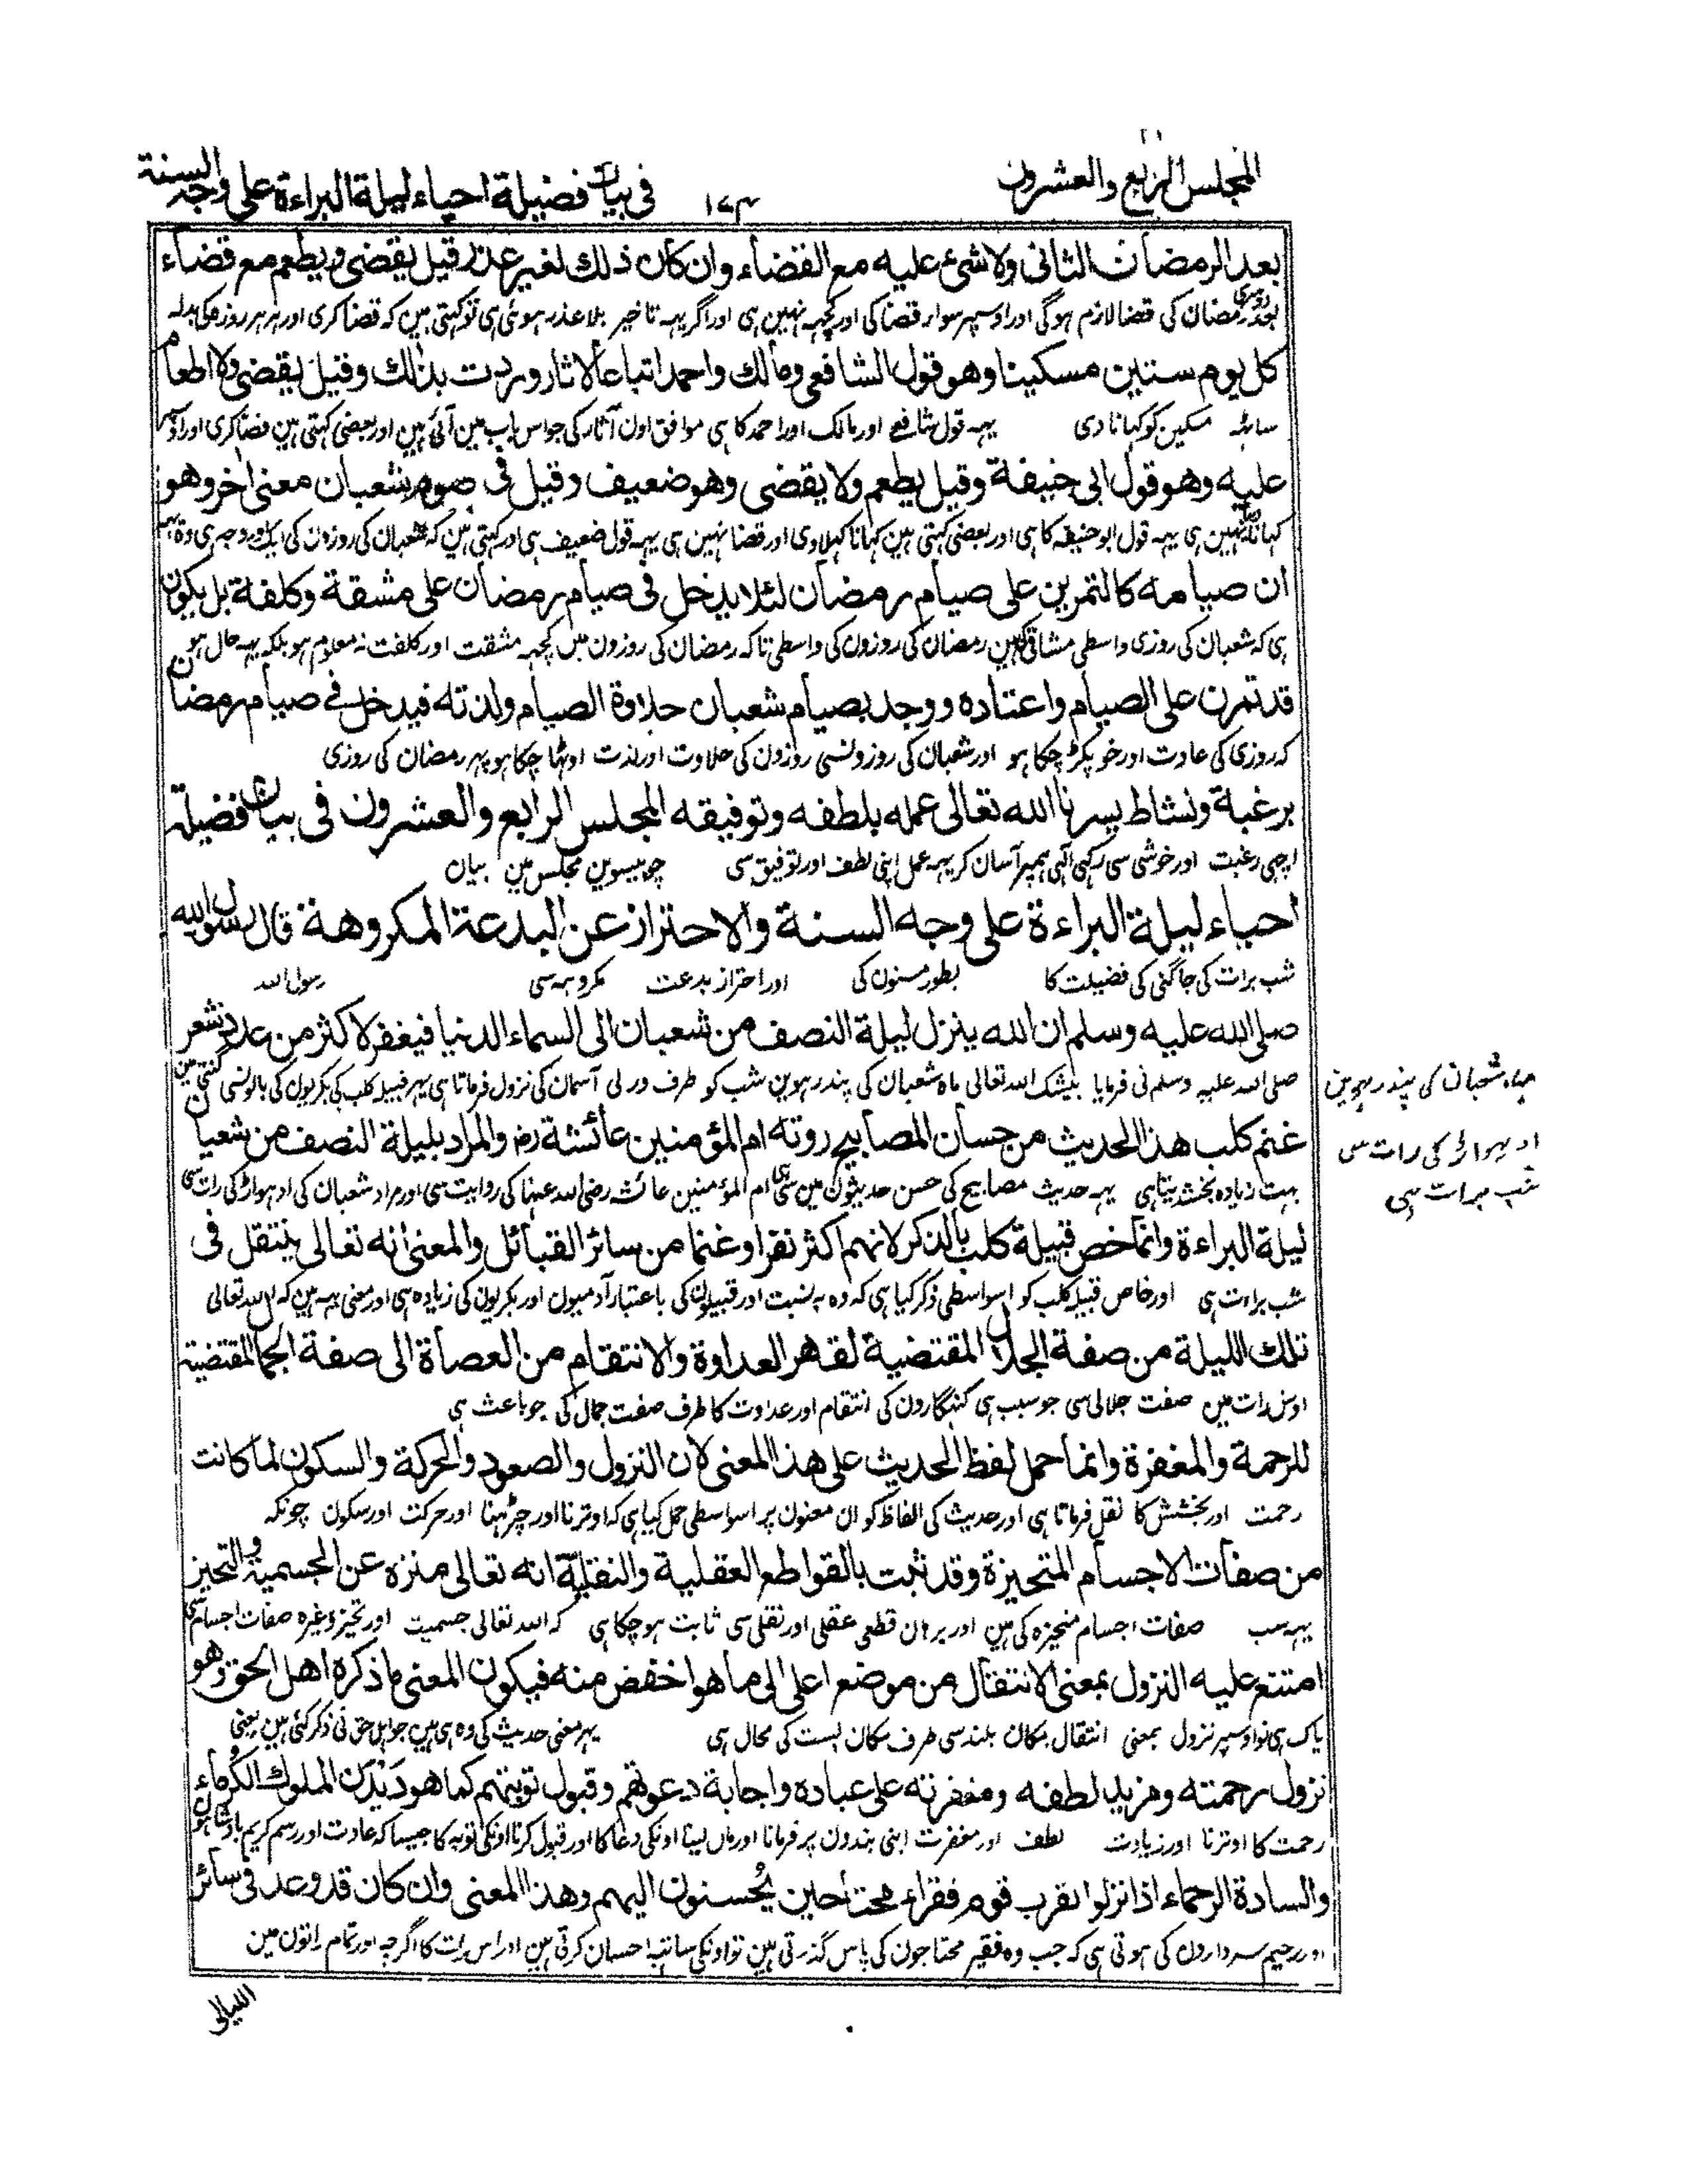 المجلس الرابع والعشرون
١٧٣
فى بيان فضيلة احياء ليلة البراءة على وجه السنة
بعد الرمضان الثانى ولا شئ عليه مع القضاء وان كان ذلك لغير عذر قيل يقضى ويطعم مع قضاء
بعد دوسرى رمضان کی قضا لازم ہوگی اور اوسپر سوار قضا کی اور کچہہ نہین ہی اور اگر یہہ تاخیر بلا عذر ہوئی ہی تو کہتی ہین کہ قضا کری اور ہر ہر روزہ کی بدلہ
كل يوم ستين مسكينا وهو قول الشافعى ومالك واحمد اتباعا لاثار وردت بذلك وقيل يقضى ولا اطعام
ساٹہہ مسکین کو کہانا دی یہہ قول شافعے اور مالک اور احمد کا ہی موافق اون آثار کی جو اس باب مین آئی ہین اور بعضی کہتی ہین قضا کری اور اوسپر
عليه وهو قول ابى حنيفة وقيل يطعم ولا يقضى وهو ضعيف وقيل فى صوم شعبان معنى اخر وهو
کہانا نہین ہی یہہ قول ابو حنیفہ کا ہی اور بعضی کہتی ہین کہانا کہلاوی اور قضا نہین ہی یہہ قول ضعیف ہی اور کہتی ہین کہ شعبان کی روزون کی ایک اور وجہ ہی وہ یہہ
ان صيامه كالتمرين على صيام رمضان لئلا يدخل فى صيام رمضان على مشقة وكلفة بل يكون
ہی کہ شعبان کی روزی واسطی مشاقی کی ہین رمضان کی روزون کی واسطی تاکہ رمضان کی روزون مین کچہہ مشقت اور کلفت نہ معلوم ہو بلکہ یہہ حال ہو
قد تمرن على الصيام واعتاده ووجد بصيام شعبان حلاوة الصيام ولذته فيدخل فى صيام رمضان
کہ روزی کی عادت اور خو پکڑ چکا ہو اور شعبان کی روزونسی روزون کی حلاوت اور لذت اوٹہا چکا ہو پہر رمضان کی روزی
برغبة ونشاط يسرنا الله تعالى عمله بلطفه وتوفيقه المجلس الرابع والعشرون فى بيان فضيلة
اچہی رغبت اور خوشی سی رکہی آلہی ہمپر آسان کر یہہ عمل اپنی لطف اور توفیق سی چوبیسوین مجلس مین بیان
احياء ليلة البراءة على وجه السنة والاحتراز عن البدعة المكروهة قال رسول الله
شب برات کی جاگنی کی فضیلت کا بطور مسنون کی اور احتراز بدعت مکروہہ سی رسول اللہ
صلى الله عليه وسلم ان الله ينزل ليلة النصف من شعبان الى السماء الدنيا فيغفر لاكثر من عدد شعر
صلی اللہ علیہ وسلم نی فرمایا بیشک اللہ تعالی ماہ شعبان کی پندرہوین شب کو طرف ورلی آسمان کی نزول فرماتا ہی پہر قبیلہ کلب کی بکریون کی بالونسی گنتی مین
غنم كلب هذا الحديث من حسان المصابيح روته ام المؤمنين عائشة رض والمراد بليلة النصف من شعبان
بہت زیادہ بخشدیتا ہی یہہ حدیث مصابیح کی حسن حدیثون مین سی ہی ام المؤمنین عائشہ رضی اللہ عنہا کی روایت سی اور مراد شعبان کی ادہواڑ کی رات سی
ليلة البراءة وانما خص قبيلة كلب بالذكر لانهم اكثر نفرا وغنما من سائر القبائل والمعنى انه تعالى ينتقل فى
شب براءت ہی اور خاص قبیلہ کلب کو اسواسطی ذکر کیا ہی کہ وہ بہ نسبت اور قبیلون کی باعتبار آدمیون اور بکریون کی زیادہ ہی اور معنی یہہ ہین کہ اللہ تعالی
تلك الليلة من صفة الجلال المقتضية لقهر العداوة والانتقام من العصاة الى صفة الجمال المقتضية
اوس رات مین صفت جلالی سی جو سبب ہی گنہگارون کی انتقام اور عداوت کا طرف صفت جمال کی جو باعث ہی
للرحمة والمغفرة وانما حمل لفظ الحديث على هذا المعنى لان النزول والصعود والحركة والسكون لما كانت
رحمت اور بخشش کا نقل فرماتا ہی اور حدیث کی الفاظ کو ان معنون پر اسواسطی حمل کیا ہی کہ اوترنا اور چڑہنا اور حرکت اور سکون چونکہ
من صفات الاجسام المتحيزة وقد ثبت بالقواطع العقلية والنقلية انه تعالى منزه عن الجسمية والتحيز
یہہ سب صفات اجسام متحیزہ کی ہین اور برہان قطعی عقلی اور نقلی سی ثابت ہو چکا ہی کہ اللہ تعالی جسمیت اور تحیز وغیرہ صفات اجسام سی
امتنع عليه النزول بمعنى الانتقال من موضع اعلى الى ما هو اخفض منه فيكون المعنى ما ذكره اهل الحق وهو
پاک ہی تو اوسپر نزول بمعنی انتقال مکان بلند سی طرف مکان پست کی محال ہی پہر معنی حدیث کی وہ ہی ہین جو اہل حق نی ذکر کئی ہین یعنی
نزول رحمته ومزيد لطفه ومغفرته على عباده واجابة دعوتهم وقبول توبتهم كما هو ديدن الملوك الكرماء
رحمت کا اوترنا اور زیادت لطف اور مغفرت اپنی بندون پر فرمانا اور مان لینا اونکی دعا کا اور قبول کرنا اونکی توبہ کا جیسا کہ عادت اور رسم کریم بادشاہون
والسادة الرحماء اذا نزلوا بقرب قوم فقراء محتاجين يحسنون اليهم وهذا المعنى وان كان قد وعد فى سائر
اور رحیم سردارون کی ہوتی ہی کہ جب وہ فقیر محتاجون کی پاس گذرتی ہین تو اونکی ساتہہ احسان کرتی ہین اور اس بات کا اگرچہ اور تمام راتون مین
الليالى
شعبان کی پندرہوین
ادہواڑ کی رات سی
شب برات ہی